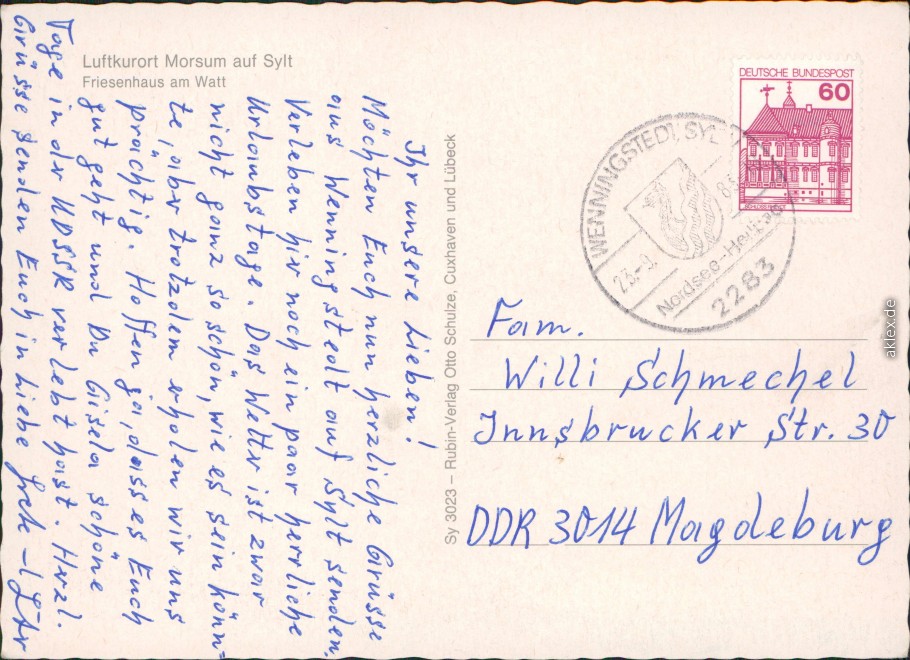 Luftkurort Morsum auf Sylt
Friesenhaus am Watt
Ihr unsere Lieben!
Möchten Euch nun herzliche Grüsse
aus Wenningstedt auf Sylt senden.
Verleben hir noch ein paar herrliche
Urlaubstage. Das Wettr ist zwar
nicht ganz so schön, wie es sein könn=
te, abr trotzdem erholen wir uns
prächtig. Hoffen ja, dass es Euch
gut geht und Du Gisela schöne
Tage in dr UDSSR verlebt hast. Herzl.
Grüsse senden Euch in Liebe
Sy 3023 – Rubin-Verlag Otto Schulze, Cuxhaven und Lübeck
DEUTSCHE BUNDESPOST
60
WENNINGSTEDT, SYLT
23.-9.
Nordsee-Heilbad
2283
Fam.
Willi Schmechel
Innsbrucker Str. 30
DDR 3014 Magdeburg
aklex.de